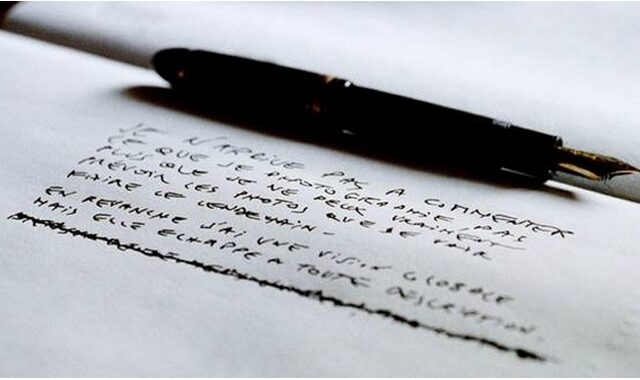 JE N'ARRIVE PAS A COMMENTER
CE QUE JE PHOTOGRAPHIE, PAS
PLUS QUE JE NE PEUX VRAIMENT
PREVOIR LES PHOTOS QUE JE VAIS
FAIRE LE LENDEMAIN-
EN REVANCHE J'AI UNE VISION GLOBALE
MAIS ELLE ECHAPPE A TOUTE DESCRIPTION.